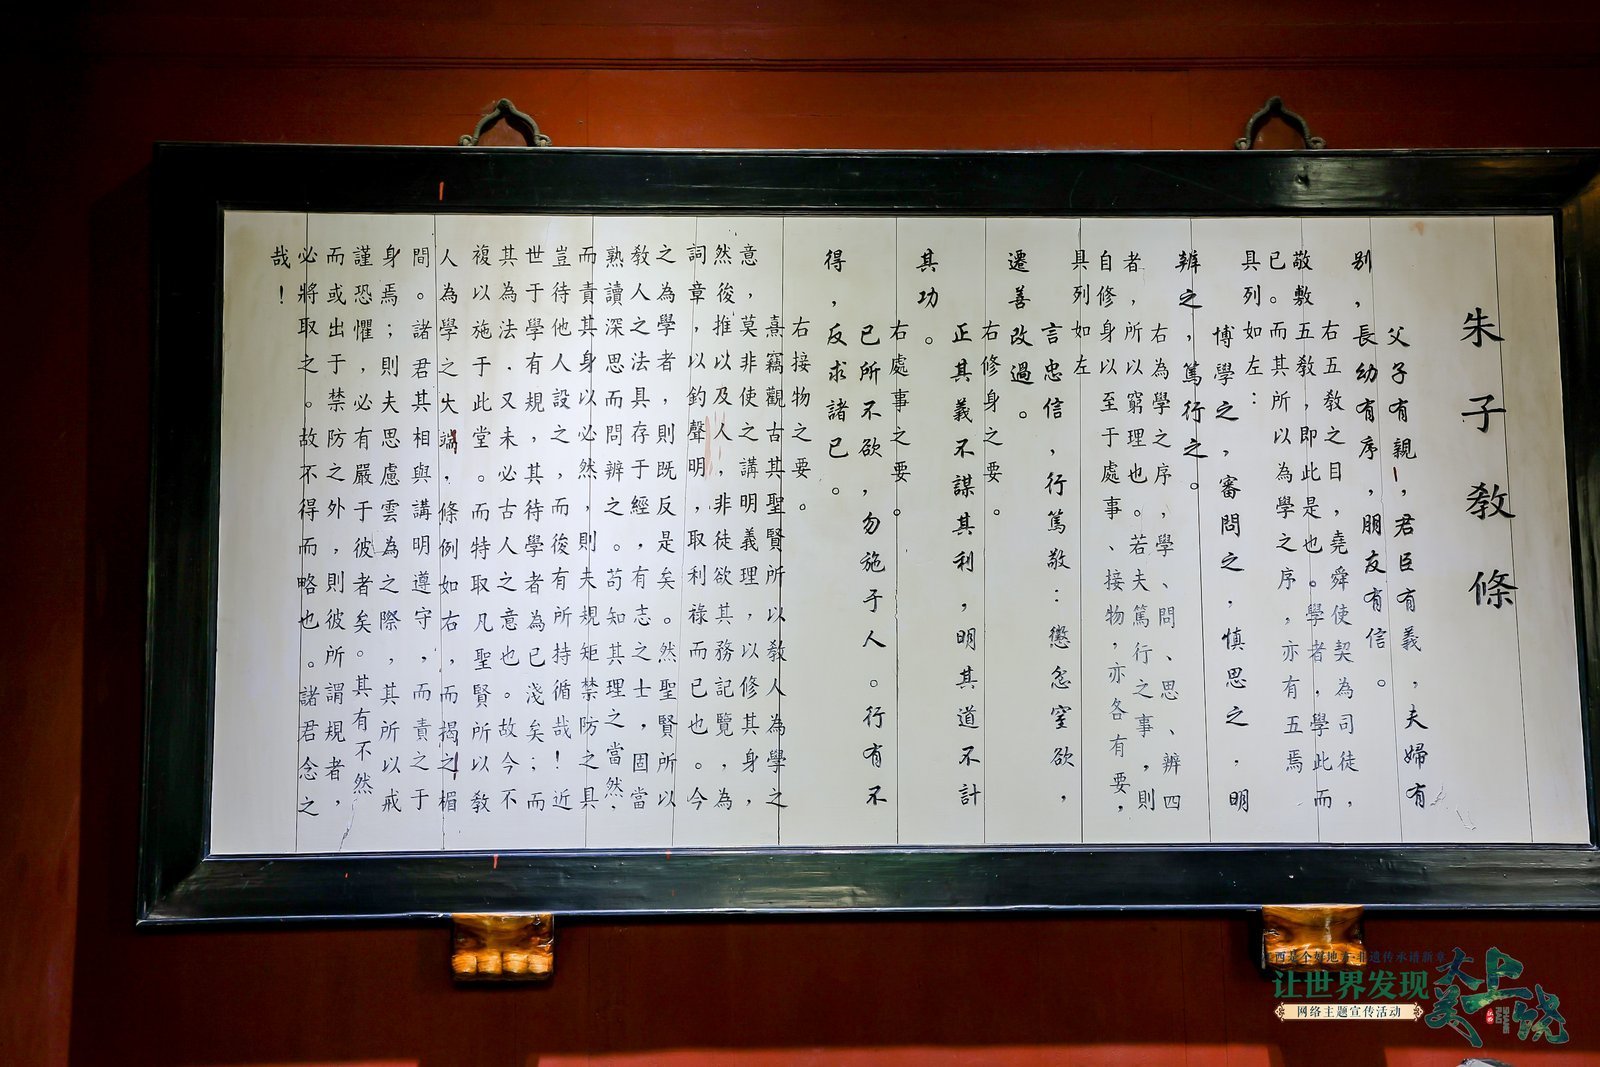 朱子教條
父子有親，君臣有義，夫婦有
別，長幼有序，朋友有信。
右五教之目，堯舜使契為司徒，
敬敷五教，即此是也。學者，學此而
已。而其所以為學之序，亦有五焉
具列如左：
博學之，審問之，慎思之，明
辨之，篤行之。
右為學之序，學、問、思、辨四
者，所以窮理也。若夫篤行之事，則
自修身以至于處事、接物，亦各有要，
具列如左
言忠信，行篤敬：懲忿窒欲，
遷善改過。
右修身之要。
正其義不謀其利，明其道不計
其功。
右處事之要。
已所不欲，勿施于人。行有不
得，反求諸已。
右接物之要。
熹竊觀古其聖賢所以教人為學之
意，莫非使之講明義理，以修其身，
然後推以及人，非徒欲其務記覽，為
詞章，以釣聲明，取利祿而已也。今
之為學者，則既反是矣。然聖賢所以
教人之法具存于經，有志之士，固當
熟讀深思而問辨之。苟知其理之當然.
而責其身以必然，則夫規矩禁防之具
豈待他人設之，而後有所持循哉！近
世于學有規，其待學者為已淺矣；而
其為法.又未必古人之意也。故今不
複以施于此堂。而特取凡聖賢所以教
人為學之大端，條例如右，而揭之楣
間。諸君其相與講明遵守，而責之于
身焉；則夫思慮雲為之際，其所以戒
謹恐懼，必有嚴于彼者矣。其有不然
而或出于禁防之外，則彼所謂規者，
必將取之。故不得而略也。諸君念之
哉！
让世界发现
网络主题宣传活动
大美上饶